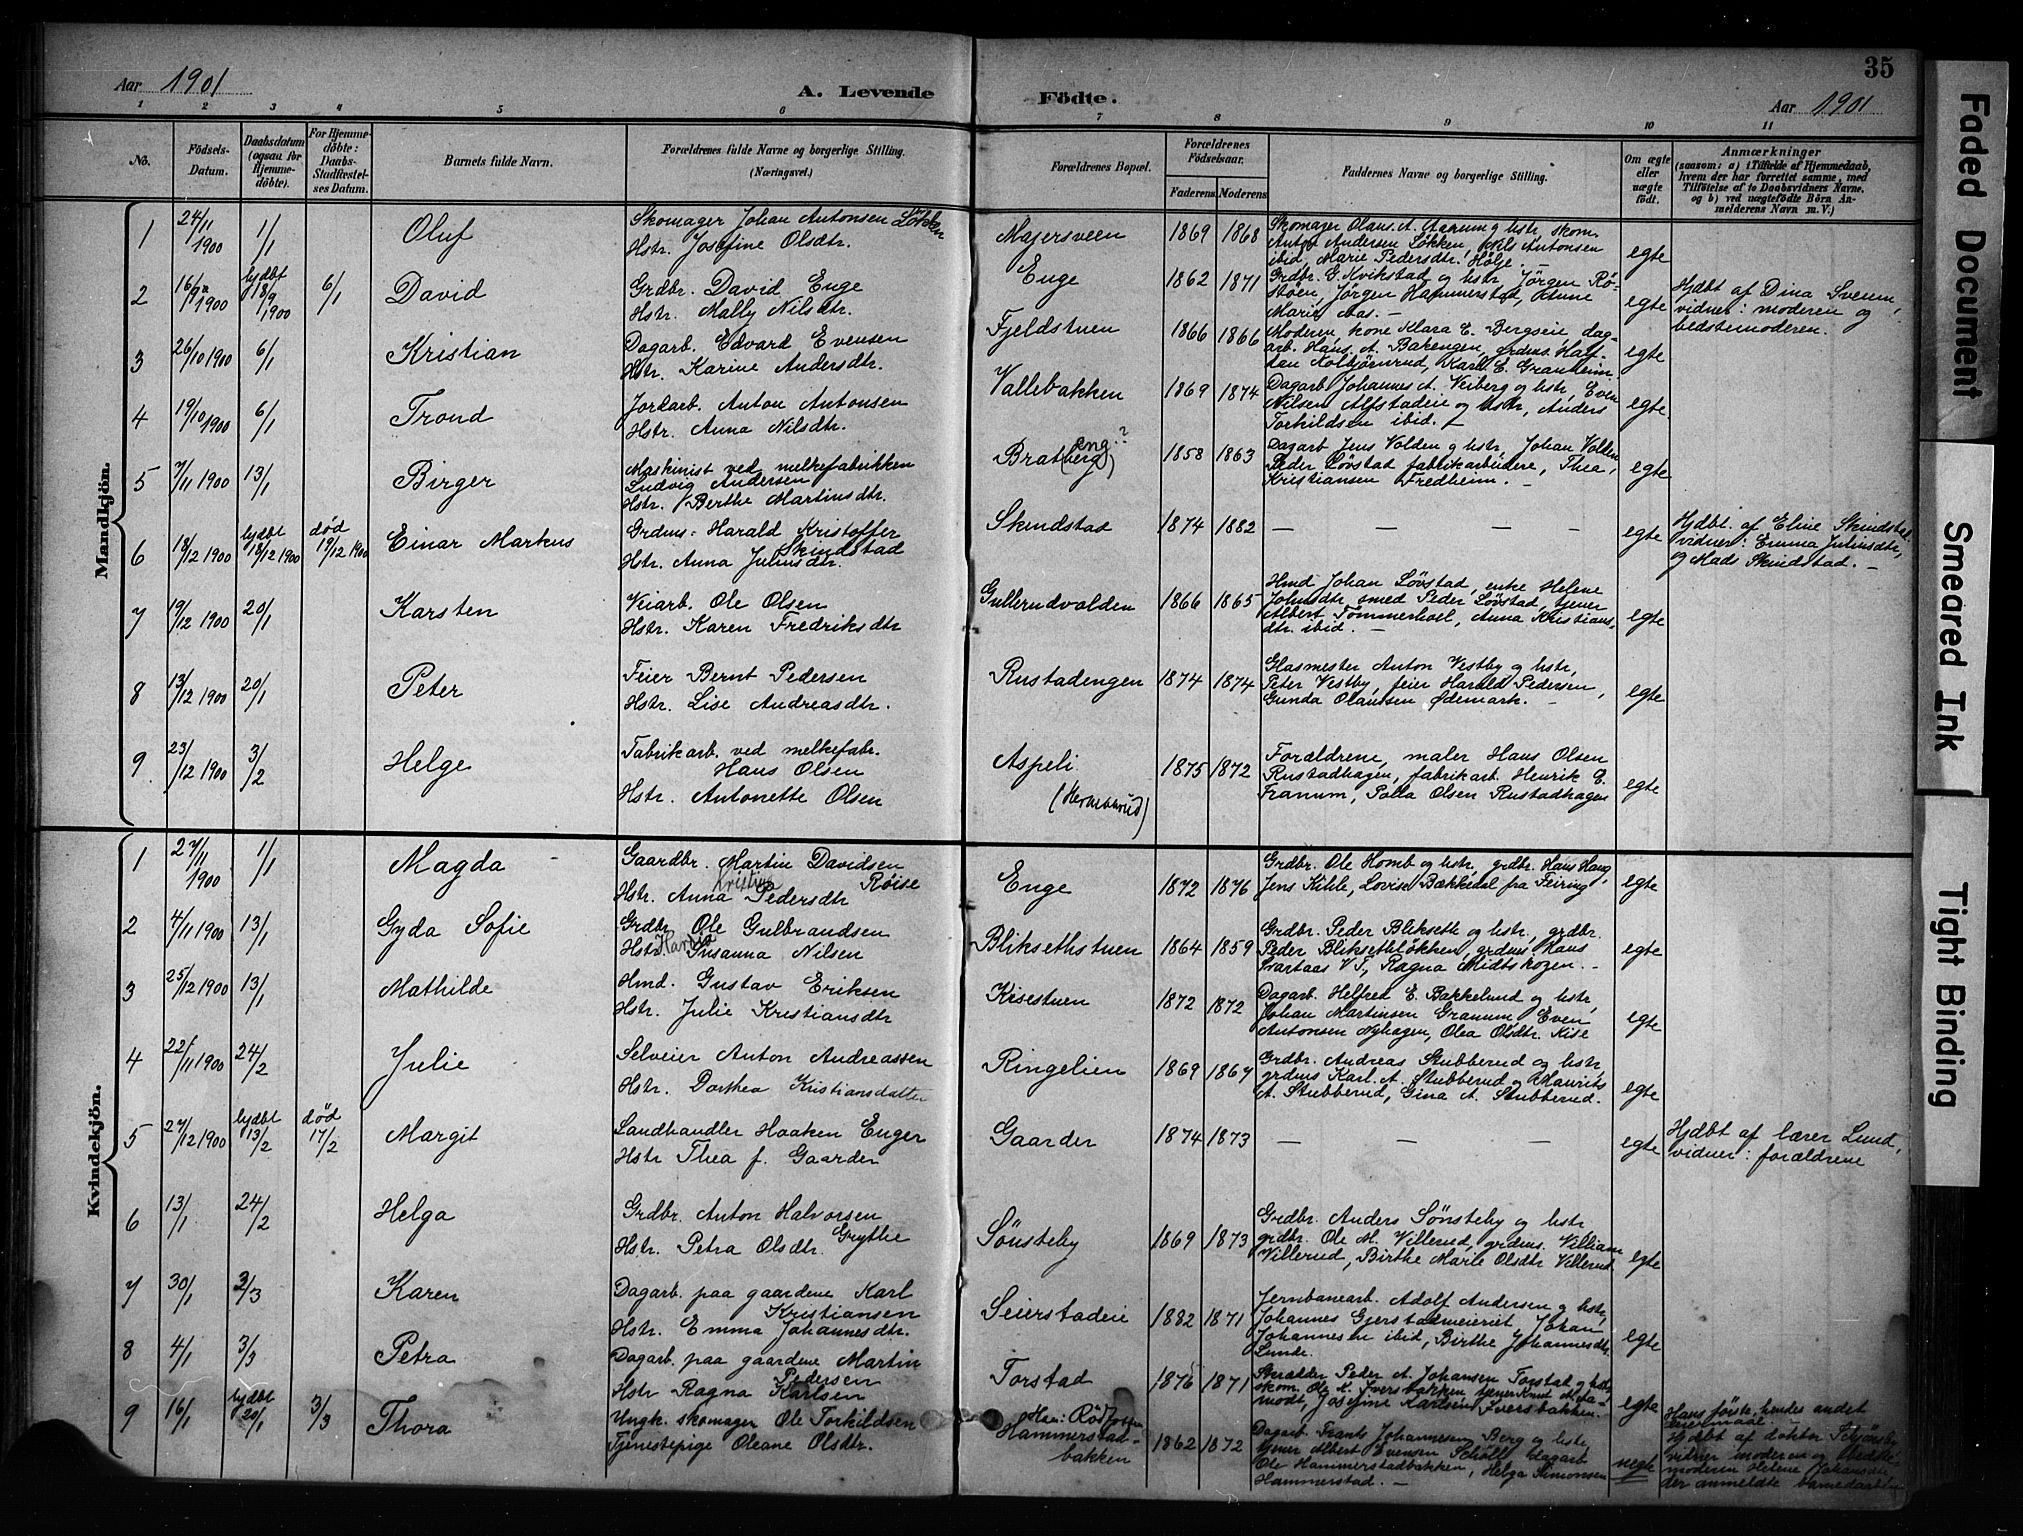 Aar 1901
A. Levende
Födte.
Aar 1901
35
1 2 3 4 5 6 7 8 9 10 11
No.
Födsels-Datum.
Daabsdatum (ogsaa for Hjemmedöbte).
For Hjemmedöbte: Daabs-Stadfæstelses Datum.
Barnets fulde Navn.
Forældrenes fulde Navne og borgerlige Stilling. (Næringsvei.)
Forældrenes Bopæl.
Forældrenes Födselsaar.
Faderens Moderens
Faddernes Navne og borgerlige Stilling.
Om ægte eller uægte födt.
Anmærkninger
(saasom: a) i Tilfælde af Hjemmedaab, hvem der har forrettet samme, med Tilföielse af to Daabsvidners Navne, og b) ved uægtefödte Börn Anmelderens Navn m. V.)
Mandkjön.
1 24/11 1900 1/1 Oluf
Skomager Johan Antonsen Løkken
Hstr. Josefine Olsdtr.
Majersveen 1869 1868
Skomager Olaus A. Aasrum g hstr, skom.
Anton Andersen Løkken, Nils Antonsen
ibid, Marie Pedersdtr. Hølje. –
egte
2 16/9 1900 hjdbt 18/9 1900 6/1 David
Grdbr. David Enge
Hstr. Mally Nilsdtr.
Enge 1862 1871
Grdbr. G. Kvikstad og hstr, Jörgen Röstöen, Jörgen Hammerstad, Anne
Marie Aas. –
egte
Hjdbt af Dina Sveum,
vidner: moderen og
bedstemoderen.
3 26/10 1900 6/1 Kristian
Dagarb. Edvard Evensen
Hstr. Karine Andersdtr.
Fjeldstuen 1866 1866
Moderen, kone Klara E. Bergseie, dagarb. Hans A. Bakengen, grdms. Halfdan Kolbjörnrud, Karl E. Granheim
egte
4 19/10 1900 6/1 Trond
Jordarb. Anton Antonsen
Hstr. Anna Nilsdtr.
Vallebakken 1869 1874
Dagarb Johannes A. Veiberg og hstr, Even
Nilsen Alfstadeie og hstr, Anders
Torkildsen ibid. –
egte
5 7/11 1900 13/1 Birger
Maskinist ved melkefabrikken
Ludvig Andersen
Hstr. Berthe Martinsdtr.
Brat(berg) eng.? 1858 1863
Dagarb Jens Volden g hstr, Johan Volden
Peder Lövstad fabrikarbeidere, Thea
Kristiansen Fredheim. –
egte
6 18/12 1900 hjdbt 18/12 1900 död 19/12 1900 Einar Markus
Grdms: Harald Kristoffer
Skindstad
Hstr. Anna Juliusdtr.
Skindstad 1874 1882 – – – –
egte
Hjdbt. af Eline Skindstad
vidner: Emma Juliusdtr,
og Mads Skindstad. –
7 19/12 1900 20/1 Karsten
Veiarb. Ole Olsen
Hstr. Karen Fredriksdtr
Gullerudvolden 1866 1865
Hmd Johan Lövstad, enke Helene
Johnsdtr, smed Peder Lövstad, tjener
Albert Tömmerhoel, Anna Kristiansdtr. ibid. –
egte
8 13/12 1900 20/1 Peter
Feier Bernt Pedersen
Hstr. Lise Andreasdtr.
Rustadengen 1874 1874
Glasmester Anton Vestby og hstr,
Peter Vestby, feier Harald Pedersen,
Gunda Olausen Ødemark. –
egte
9 23/12 1900 3/2 Helge
Fabrikarb. ved melkefabr.
Hans Olsen
Hstr. Antonette Olsen
Aspeli 1875 1872
Forældrene, maler Hans Olsen
Rustadhagen, fabrikarb. Henrik E.
Franum, Polla Olsen Rustadhagen
egte
Kvindekjön.
1 27/11 1900 1/1 Magda
Gaardbr. Martin Davidsen
Röise
Kristine
Hstr. Anna Pedersdtr
Enge 1872 1876
Grdbr. Ole Homb og hstr, grdbr. Hans Haug,
Jens Kihle, Lovise Bækkedal fra Feiring
egte
2 4/11 1900 13/1 Gyda Sofie
Grdbr. Ole Gulbrandsen
Hstr. Susanna Nilsen
Bliksethstuen 1864 1859
Grdbr. Peder Bliksett og hstr, grdbr.
Peder Bliksethlökken, grdms. Hans
Svartaas V.T., Ragna Midtskogen. –
egte
3 25/12 1900 13/1 Mathilde
Hmd. Gustav Eriksen
Hstr. Julie Kristiansdtr
Kisestuen 1872 1872
Dagarb. Helfred E. Bakkelund og hstr,
Johan Martinsen Granum, Even
Antonsen Nyhagen, Olea Olsdtr. Kise
egte
4 22/11 1900 24/2 Julie
Selveier Anton Andreassen
Hstr. Dorthea Kristiansdatter
Ringelien 1869 1867
Grdbr. Andreas Stubberud og hstr,
grdms Karl A. Stubberud og Maurits
A. Stubberud, Gina A. Stubberud.
egte
5 27/12 1900 hjdbt 13/2 död 17/2 Margit
Landhandler Haaken Enger
Hstr Thea f. Gaarder
Gaarder 1874 1873 – – –
egte
Hjdbt af lærer Lund,
vidner: forældrene
6 13/1 24/2 Helga
Grdbr. Anton Halvorsen
Grythe
Hstr. Petra Olsdtr.
Sönsteby 1869 1873
Grdbr. Anders Sönsteby og hstr
grdbr. Ole M. Villerud, grdms. Villiam
Villerud, Birthe Marie Olsdtr Villerud
egte
7 30/1 3/3 Karen
Dagarb. paa gaardene Karl
Kristiansen
Hstr. Emma Johannesdtr.
Seierstadeie 1882 1871
Jernbanearb. Adolf Andersen g hstr,
Johannes Gjerstadmeieriet, Johan
Johannesen ibid, Birthe Johannesdtr.
Lunde.
egte
8 4/1 3/3 Petra
Dagarb. paa gaardene Martin
Pedersen
Hstr Ragna Karlsen
Torstad 1876 1871
Skrædder Peder A. Johansen Torstad og hstr
skom. Ole K. Iversbakken, tjener Knut
Josefine Karlsen Iversbakken.
egte
9 16/1 hjdbt 20/1 3/3 Thora
Ungk. skomager Ole Torkildsen
Tjenestepige Oleane Olsdtr.
Hammerstadbakken 1862 1872
Dagarb. Frants Johannesen Berg og hstr,
tjener Albert Evensen Schöll, dagarb
Ole Hammerstadbakken, Helga Simonsen
Hammerstad. –
uegte
Hans förste, hendes andet
leiermaal. –
Hjdbt af doktor
vidner moderen og bedstemoderen Helene Johansdtr
der anmeldte barnedaaben
Faded Document
Smeared Ink
Tight Binding